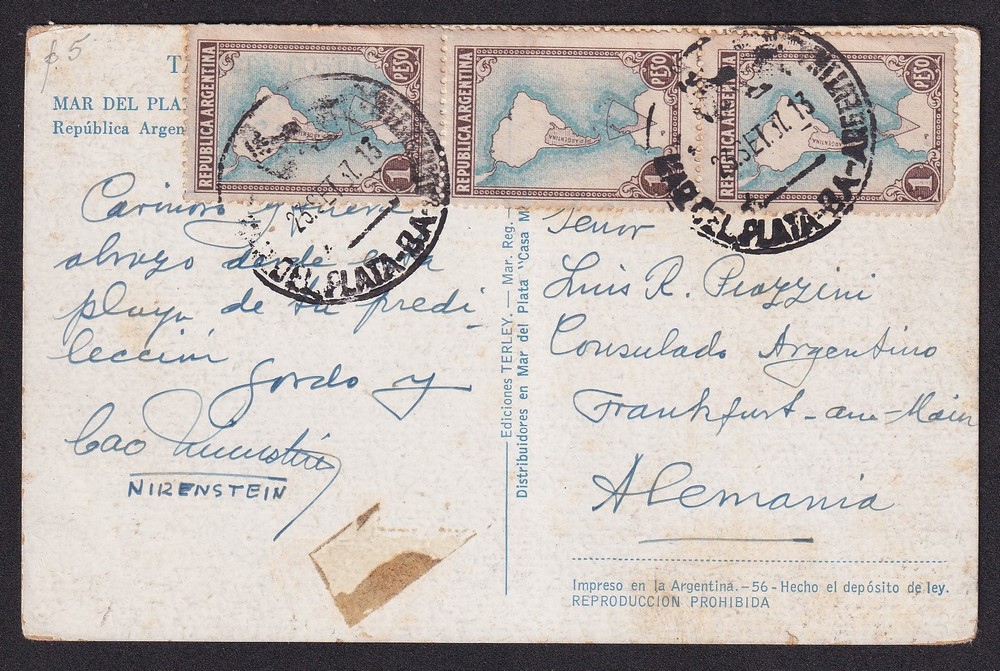 $5
T
MAR DEL PLA
República Argen
REPUBLICA ARGENTINA
PESO
1
ARGENTINA
REPUBLICA ARGENTINA
PESO
1
ARGENTINA
REPUBLICA ARGENTINA
PESO
1
25.SET.57.13
DEL PLATA-B.A-
25.SET.57.13
MAR DEL PLATA-B.A-ARGENTINA
Cariñoso y
abrazo desde esta
playa de su predi-
lección
Gordo y
Cao
NIRENSTEIN
Ediciones TERLEY.—Mar. Reg.
Distribuidores en Mar del Plata "Casa M
Señor
Luis R. Piazzini
Consulado Argentino
Frankfurt-am-Main
Alemania
Impreso en la Argentina.-56-Hecho el depósito de ley.
REPRODUCCION PROHIBIDA